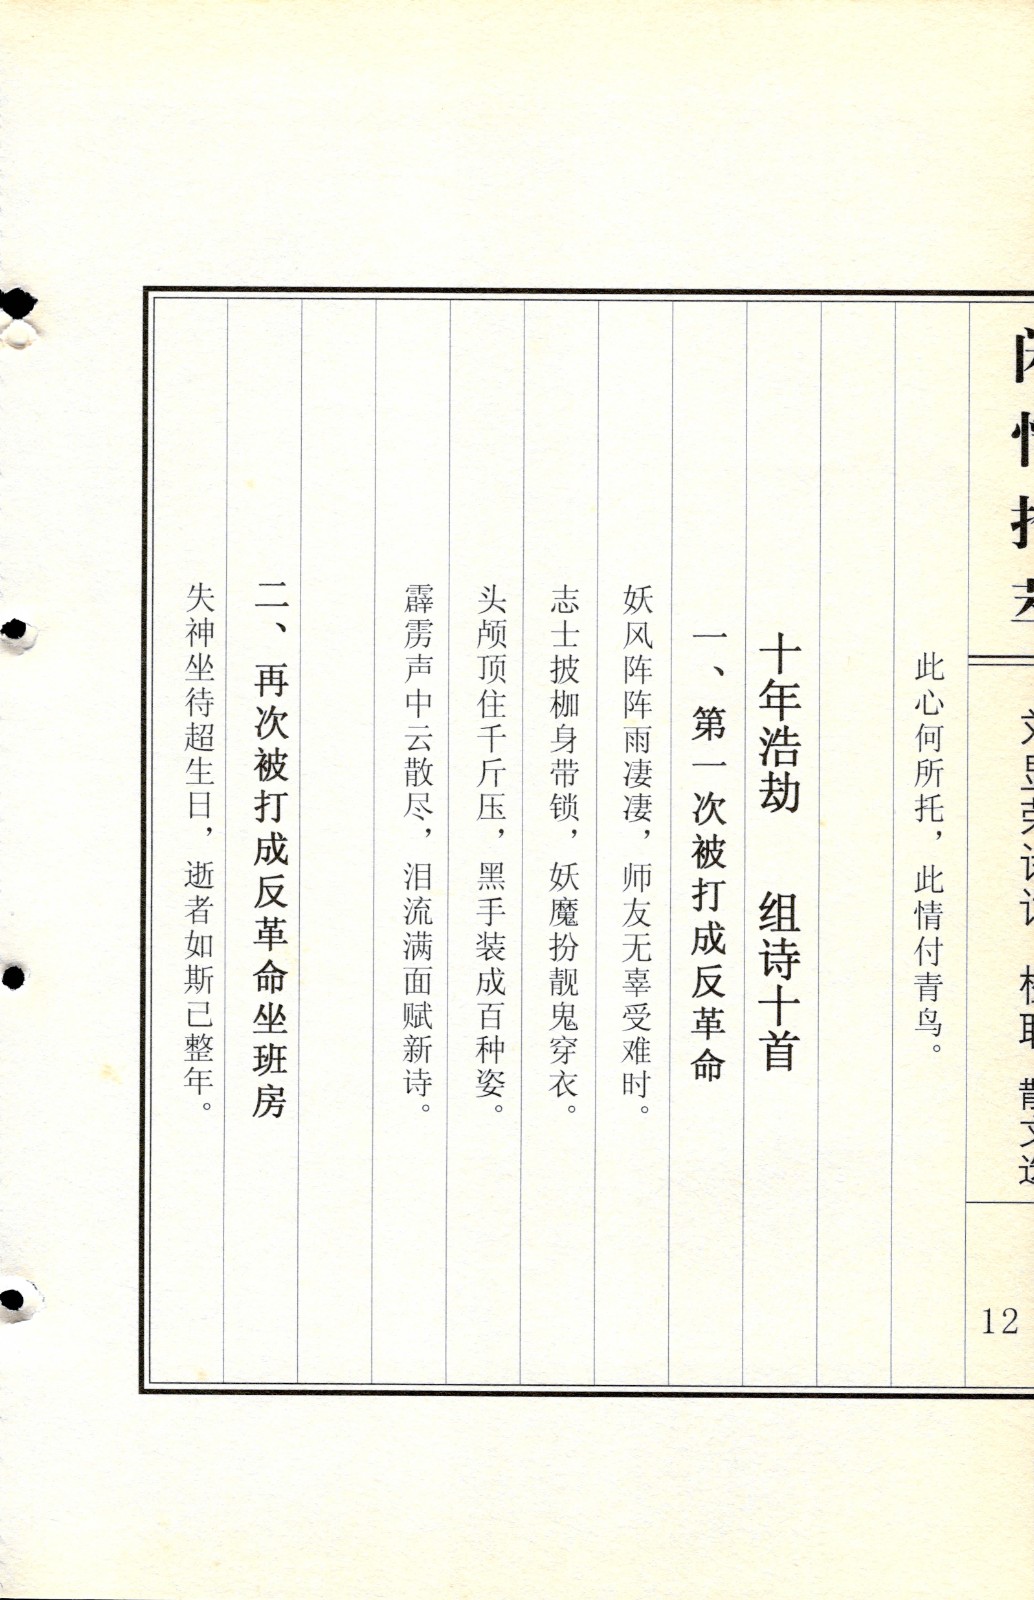 12
此心何所托，此情付青鸟。
十年浩劫　组诗十首
一、第一次被打成反革命
妖风阵阵雨凄凄，师友无辜受难时。
志士披枷身带锁，妖魔扮靓鬼穿衣。
头颅顶住千斤压，黑手装成百种姿。
霹雳声中云散尽，泪流满面赋新诗。
二、再次被打成反革命坐班房
失神坐待超生日，逝者如斯已整年。